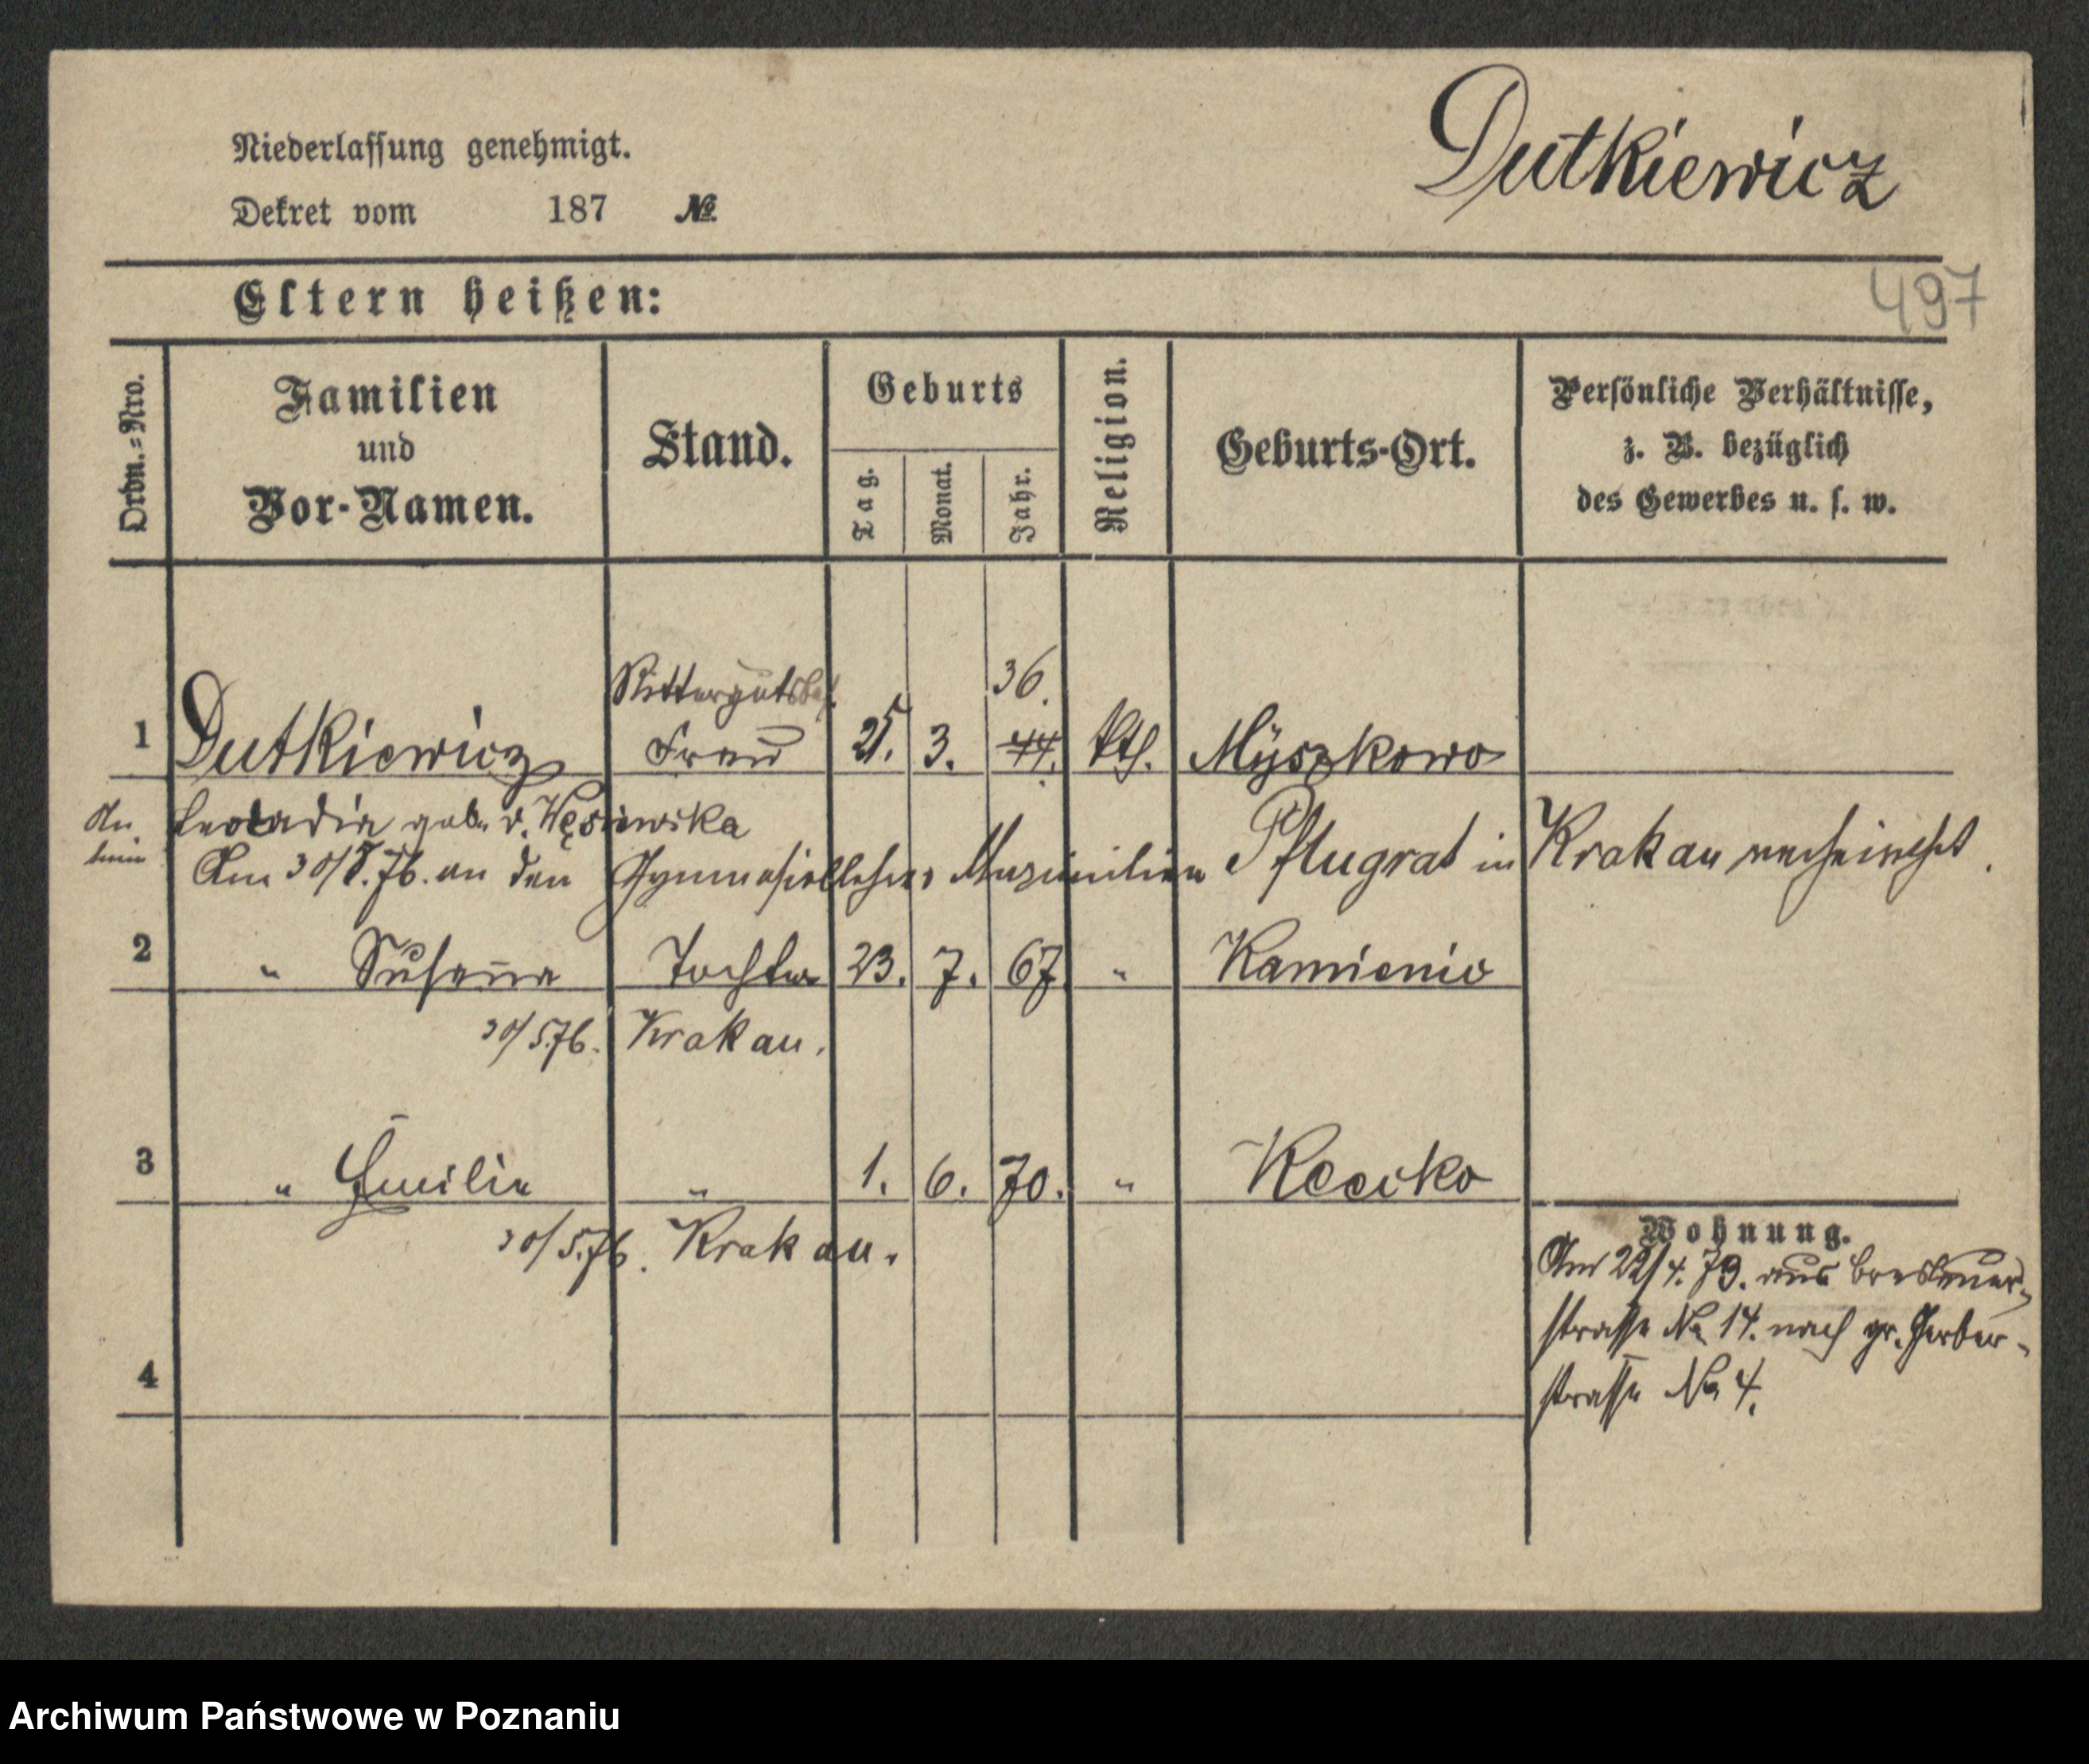 Dutkiewicz
Niederlassung genehmigt.
Dekret vom 187 №
497
Eltern heißen:
Ordn.-Nro.
Familien
und
Vor-Namen.
Stand.
Geburts
Tag.
Monat.
Jahr.
Religion.
Geburts-Ort.
Persönliche Verhältnisse,
z. B. bezüglich
des Gewerbes u. s. w.
Rittergutsbes. 36.
1 Dutkiewicz Frau 3. 44. kth. Myszkowo
Leocadia geb. v.
Am 30/5.76. an den Gymnasiallehrer Maximilian Pflugrat in Krakau
2 " Susanna Tochter 23. 7. 67 " Kamieniec
30/5.76. Krakau.
3 " Emilie " 1. 6. 70. " Klecko
30/5.76. Krakau.
Wohnung.
22/4. 73. aus Breslauer-
strasse No 14. nach gr. Gerber-
strasse No 4.
4
Archiwum Państwowe w Poznaniu